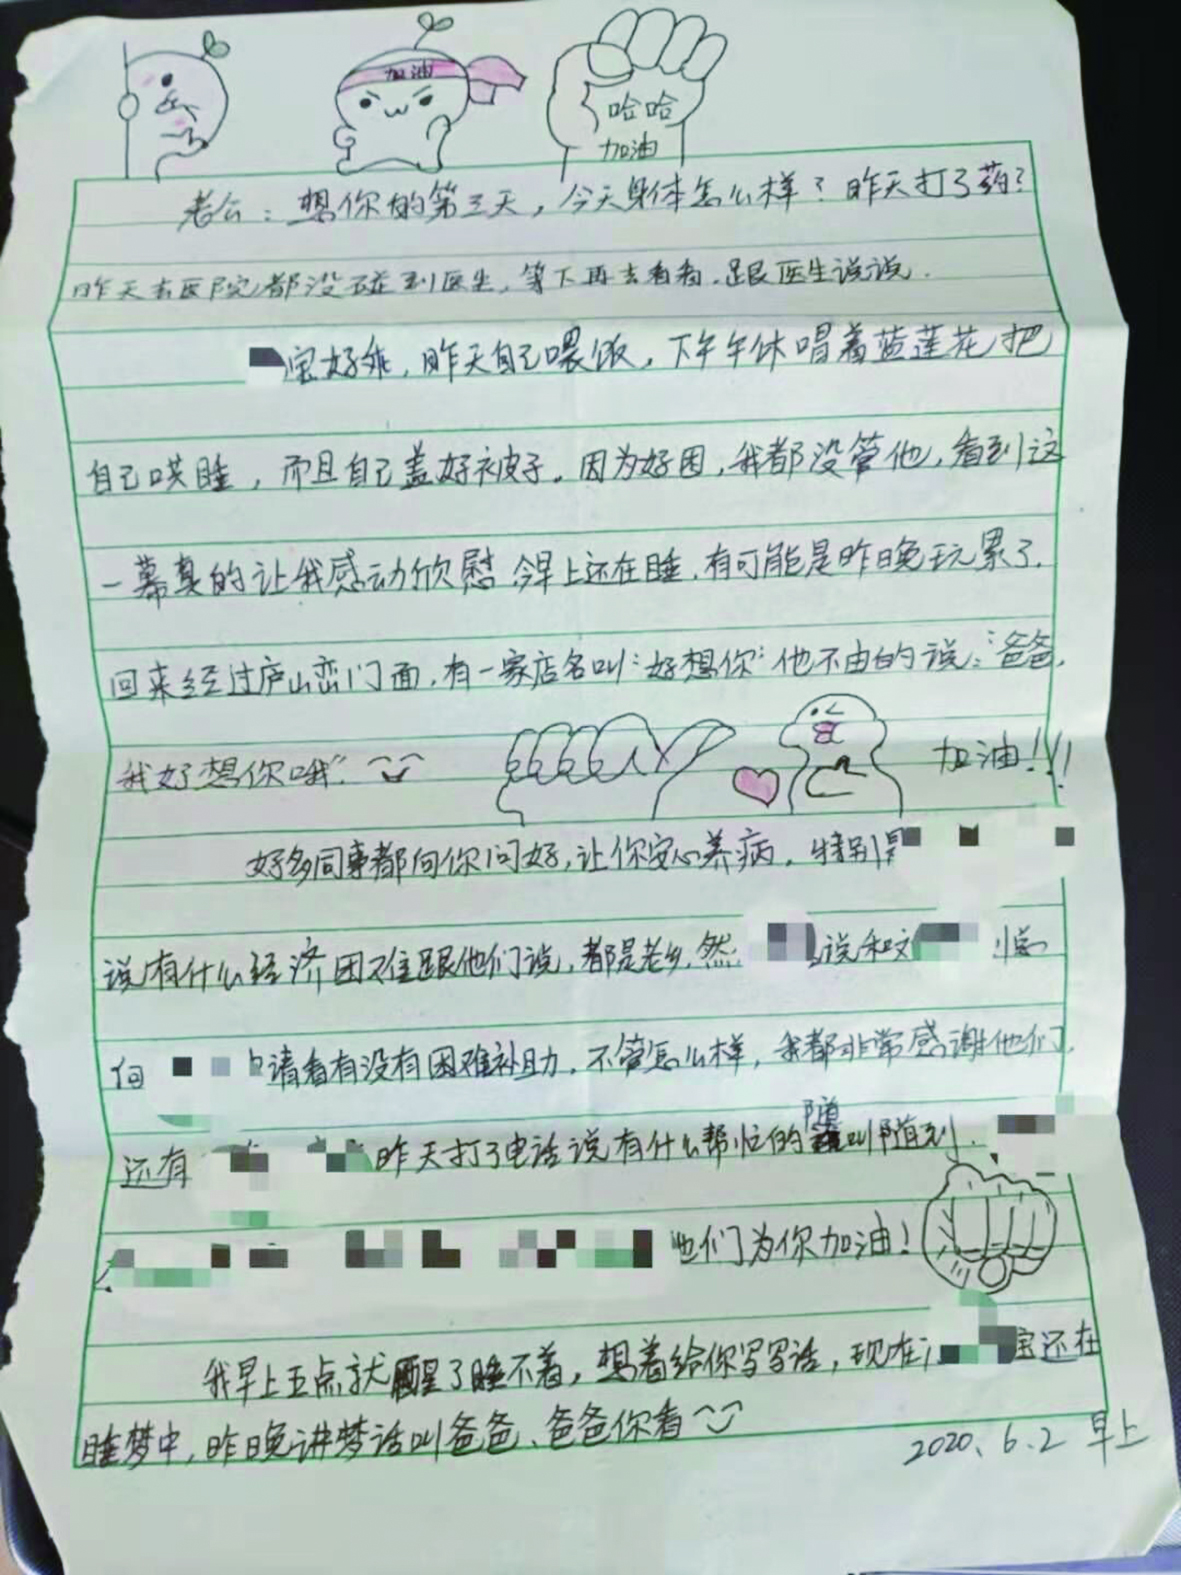 加油
哈哈
加油
老公：想你的第三天，今天身体怎么样？昨天打了药？
昨天去医院都没碰到医生，等下再去看看，跟医生说说．
宝好乖，昨天自己喂饭，下午午休唱着蓝莲花把
自己哄睡，而且自己盖好被子。因为好困，我都没管他，看到这
一幕真的让我感动欣慰 今早上还在睡，有可能是昨晚玩累了．
回来经过庐山恋门面，有一家店名叫“好想你”他不由的说：“爸爸，
我好想你哦”
加油！！！
好多同事都向你问好，让你安心养病，特别是
说有什么经济困难跟他们说，都是老乡，然 说和文
向 请看有没有困难补助，不管怎么样，我都非常感谢他们，
还有 昨天打了电话说有什么帮忙的随叫随到．
他们为你加油！
我早上五点就醒了睡不着，想着给你写写话，现在 宝还在
睡梦中，昨晚讲梦话叫爸爸、爸爸你看
2020、6.2 早上